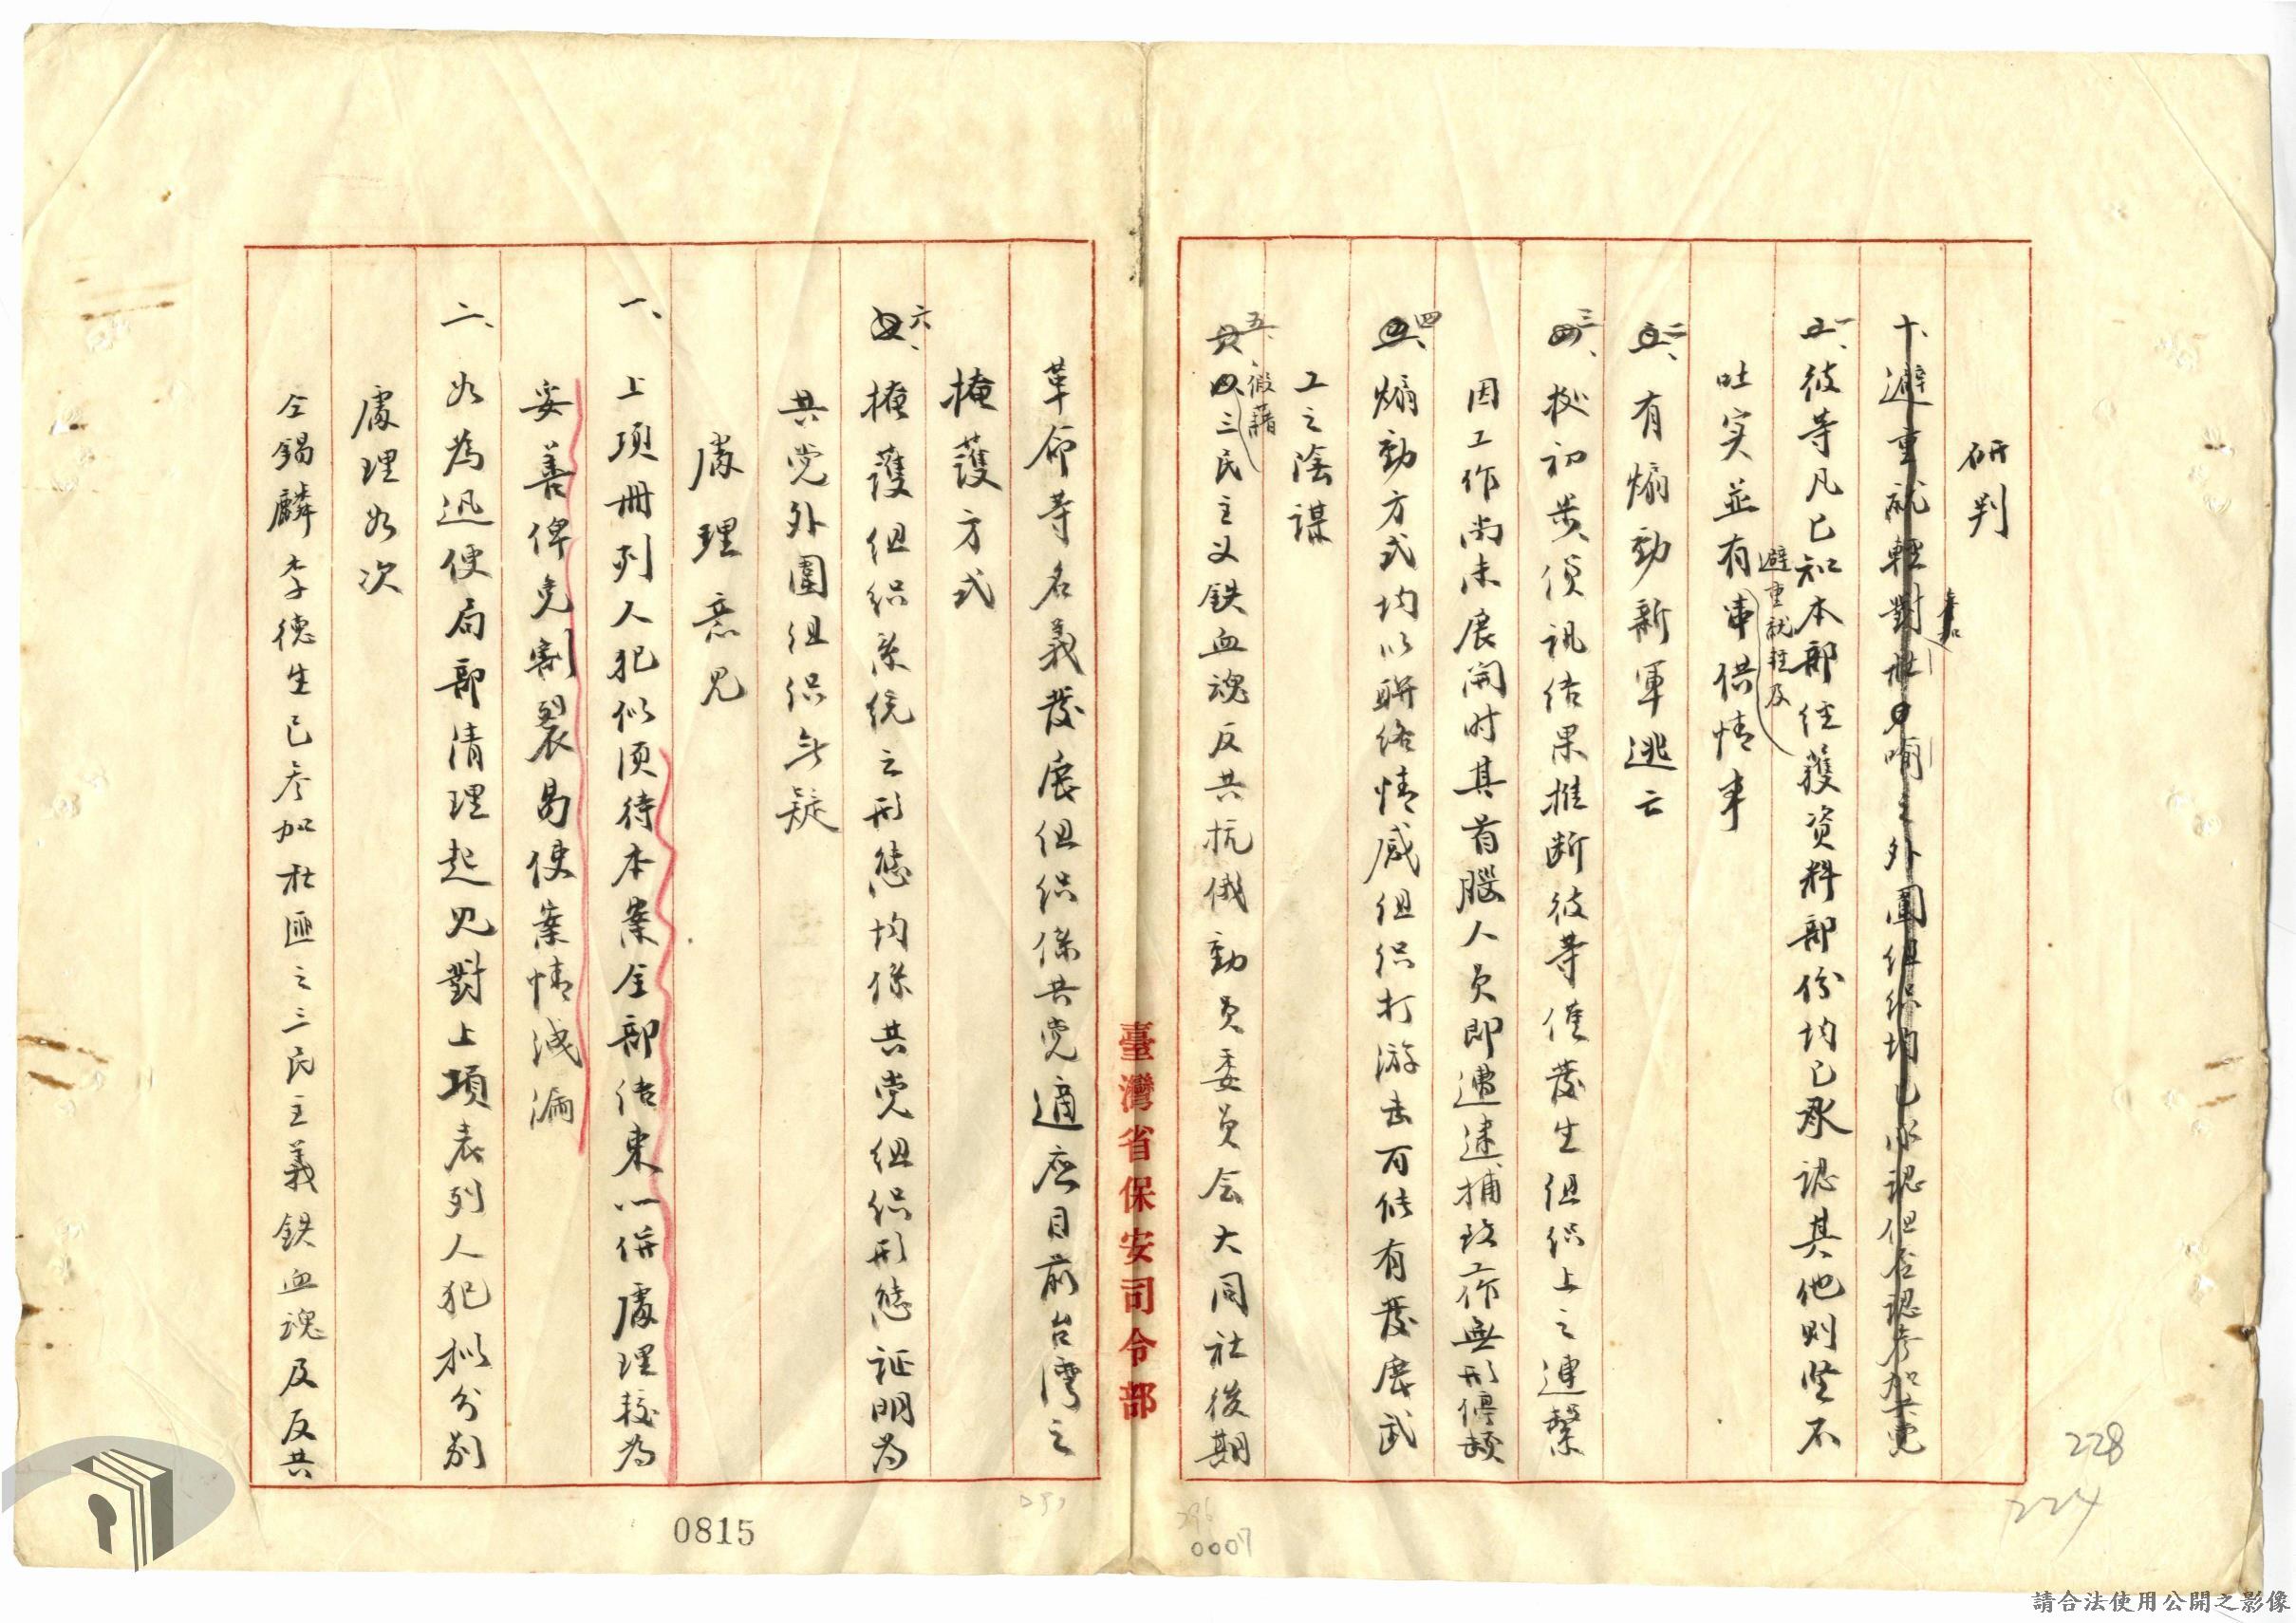 研判
十、避重就輕對社會……之外圍組织均已承認但否認參加共党
一、彼等凡已知本部往獲资料部份均已承認其他則坚不
避重就輕及
吐实並有串供情事
二、有煽動新軍逃亡
三、按初步偵訊结果推断彼等僅發生组织上之連繫
因工作尚未展開时其首腦人员即遭逮捕致工作無形停頓
四、煽動方式均以聯络情感组织打游击可能有發展武
工之陰謀
五、假藉
三民主义鉄血魂反共抗俄動员委员会大同社後期
革命等名義發展组织係共党適应目前台湾之
掩護方式
六、掩護组织系统之形態均係共党组织形態证明为
共党外圍组织无疑
處理意见
一、上项冊列人犯似须待本案全部结束一併處理較为
妥善俾免割裂易使案情洩漏
二、如為迅使局部清理起见對上項表列人犯拟分别
處理如次
仝錫麟李德生已参加社匪之三民主義鉄血魂及反共
臺灣省保安司令部
228
224
0007
0815
請合法使用公開之影像